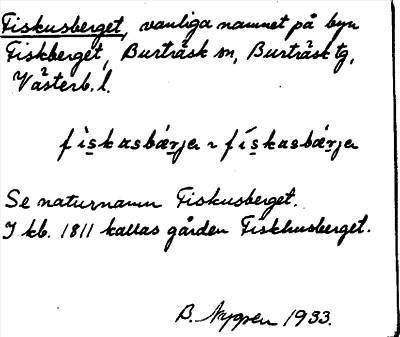 Fiskusberget, vanliga namnet på byn
Fiskberget, Burträsk sn, Burträsk tg,
Västerb. l.
fìskasbǽrjer ~ fískasbǽrjer
Se naturnamn Fiskusberget.
I kb. 1811 kallas gården Fiskhusberget.
B. Nygren 1933.